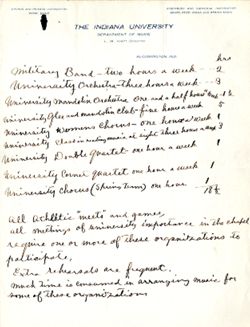 THE INDIANA UNIVERSITY
DEPARTMENT OF MUSIC
BLOOMINGTON, IND.
hrs
Military Band - two hours a week - 2
University Orchestra - three hours a week - 3
University Mandolin Orchestra One and a half hours - 1½
University Glee and Mandolin Club - five hours a week 5
University Womens Chorus - one hour a week 1
University Class in reading music at eight three hours a week 3
University Double Quartet one hour a week 1
University Cornet Quartet one hour a week 1
University Chorus (Spring Term) one hour - 1
18½
All Athletic "meets" and games,
all meetings of university importance in the chapel
require one or more of these organizations to
participate,
Extra rehearsals are frequent.
Much time is consumed in arranging music for
some of these organizations